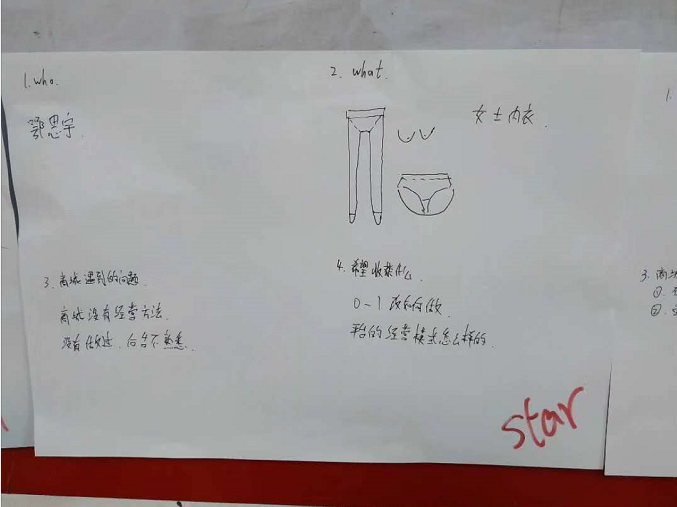 1. who.
鄂思宇
2. what.
女士内衣.
3. 商城遇到的问题
商城没有经营方法
没有做过.后台不熟悉.
4. 希望收获什么
0-1 该如何做
平台的经营模式怎么样的.
star
1.
3. 商城
①.
②.